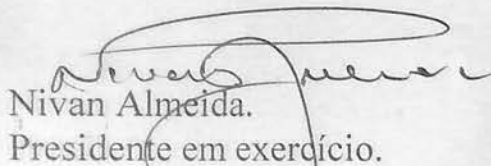 Nivan Almeida.
Presidente em exercício.